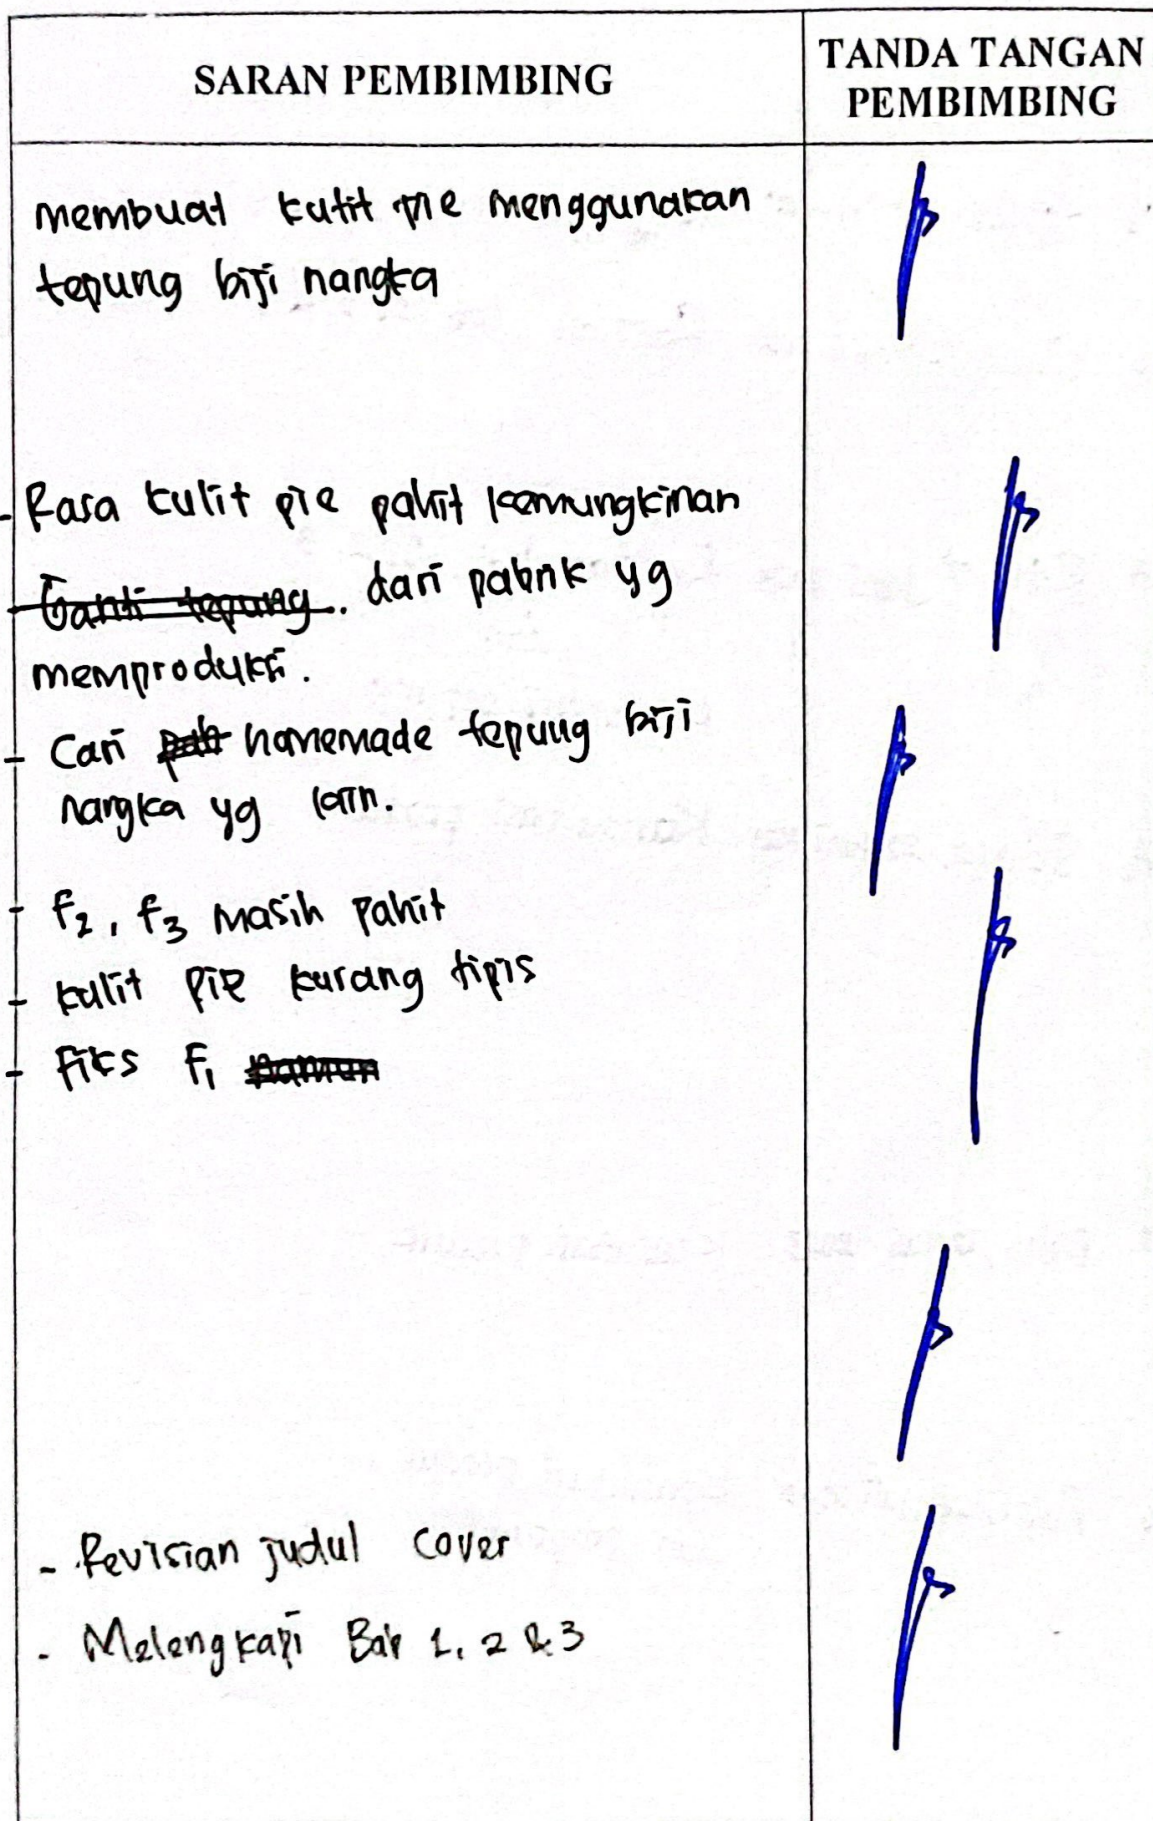 SARAN PEMBIMBING
TANDA TANGAN
PEMBIMBING
membuat kulit pie menggunakan
tepung biji nangka
- Rasa kulit pie pahit kemungkinan
- Ganti tepung.. dari pabrik yg
memproduksi.
- Cari pab homemade tepung biji
nangka yg lain.
- F2, F3 masih pahit
- kulit pie kurang tipis
- Fiks F1 namun
- Revisian judul cover
- Melengkapi Bab 1, 2 & 3